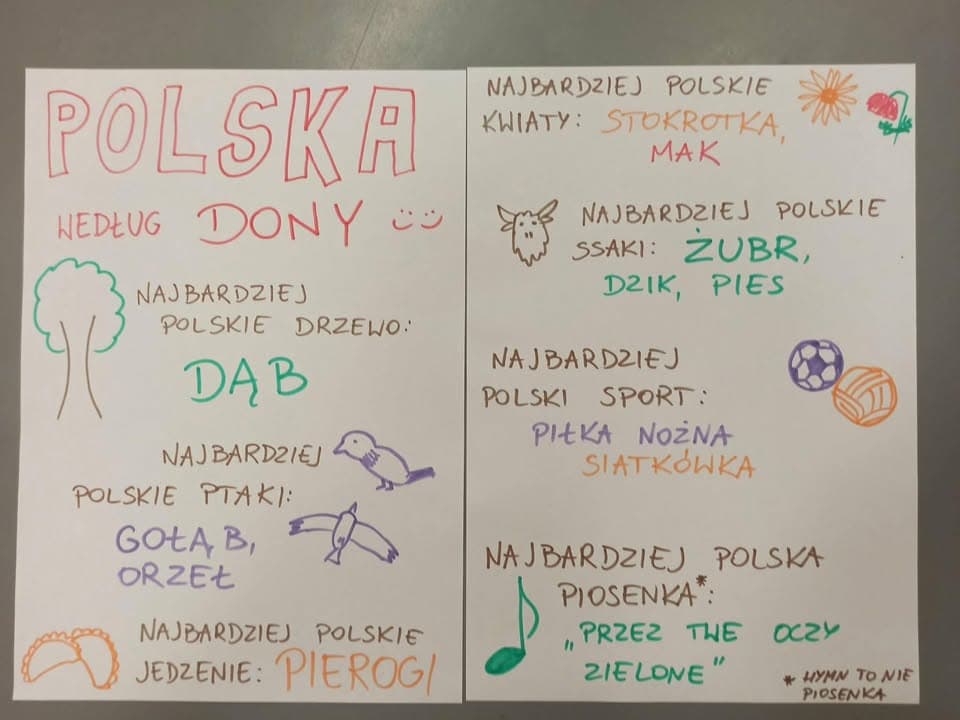 POLSKA
WEDŁUG DONY
NAJBARDZIEJ
POLSKIE DRZEWO:
DĄB
NAJBARDZIEJ
POLSKIE PTAKI:
GOŁĄB,
ORZEŁ
NAJBARDZIEJ POLSKIE
JEDZENIE: PIEROGI
NAJBARDZIEJ POLSKIE
KWIATY: STOKROTKA,
MAK
NAJBARDZIEJ POLSKIE
SSAKI: ŻUBR,
DZIK, PIES
NAJBARDZIEJ
POLSKI SPORT:
PIŁKA NOŻNA
SIATKÓWKA
NAJBARDZIEJ POLSKA
PIOSENKA*:
„PRZEZ TWE OCZY
ZIELONE"
* HYMN TO NIE
PIOSENKA